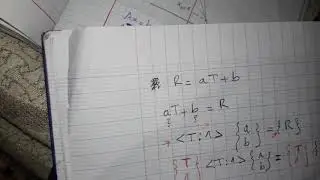 Ax =
* R = aT + b
aT + b = R
? ?
→ <T:1> {a b} = {R}
{T 1} <T:1> {a b} = {T